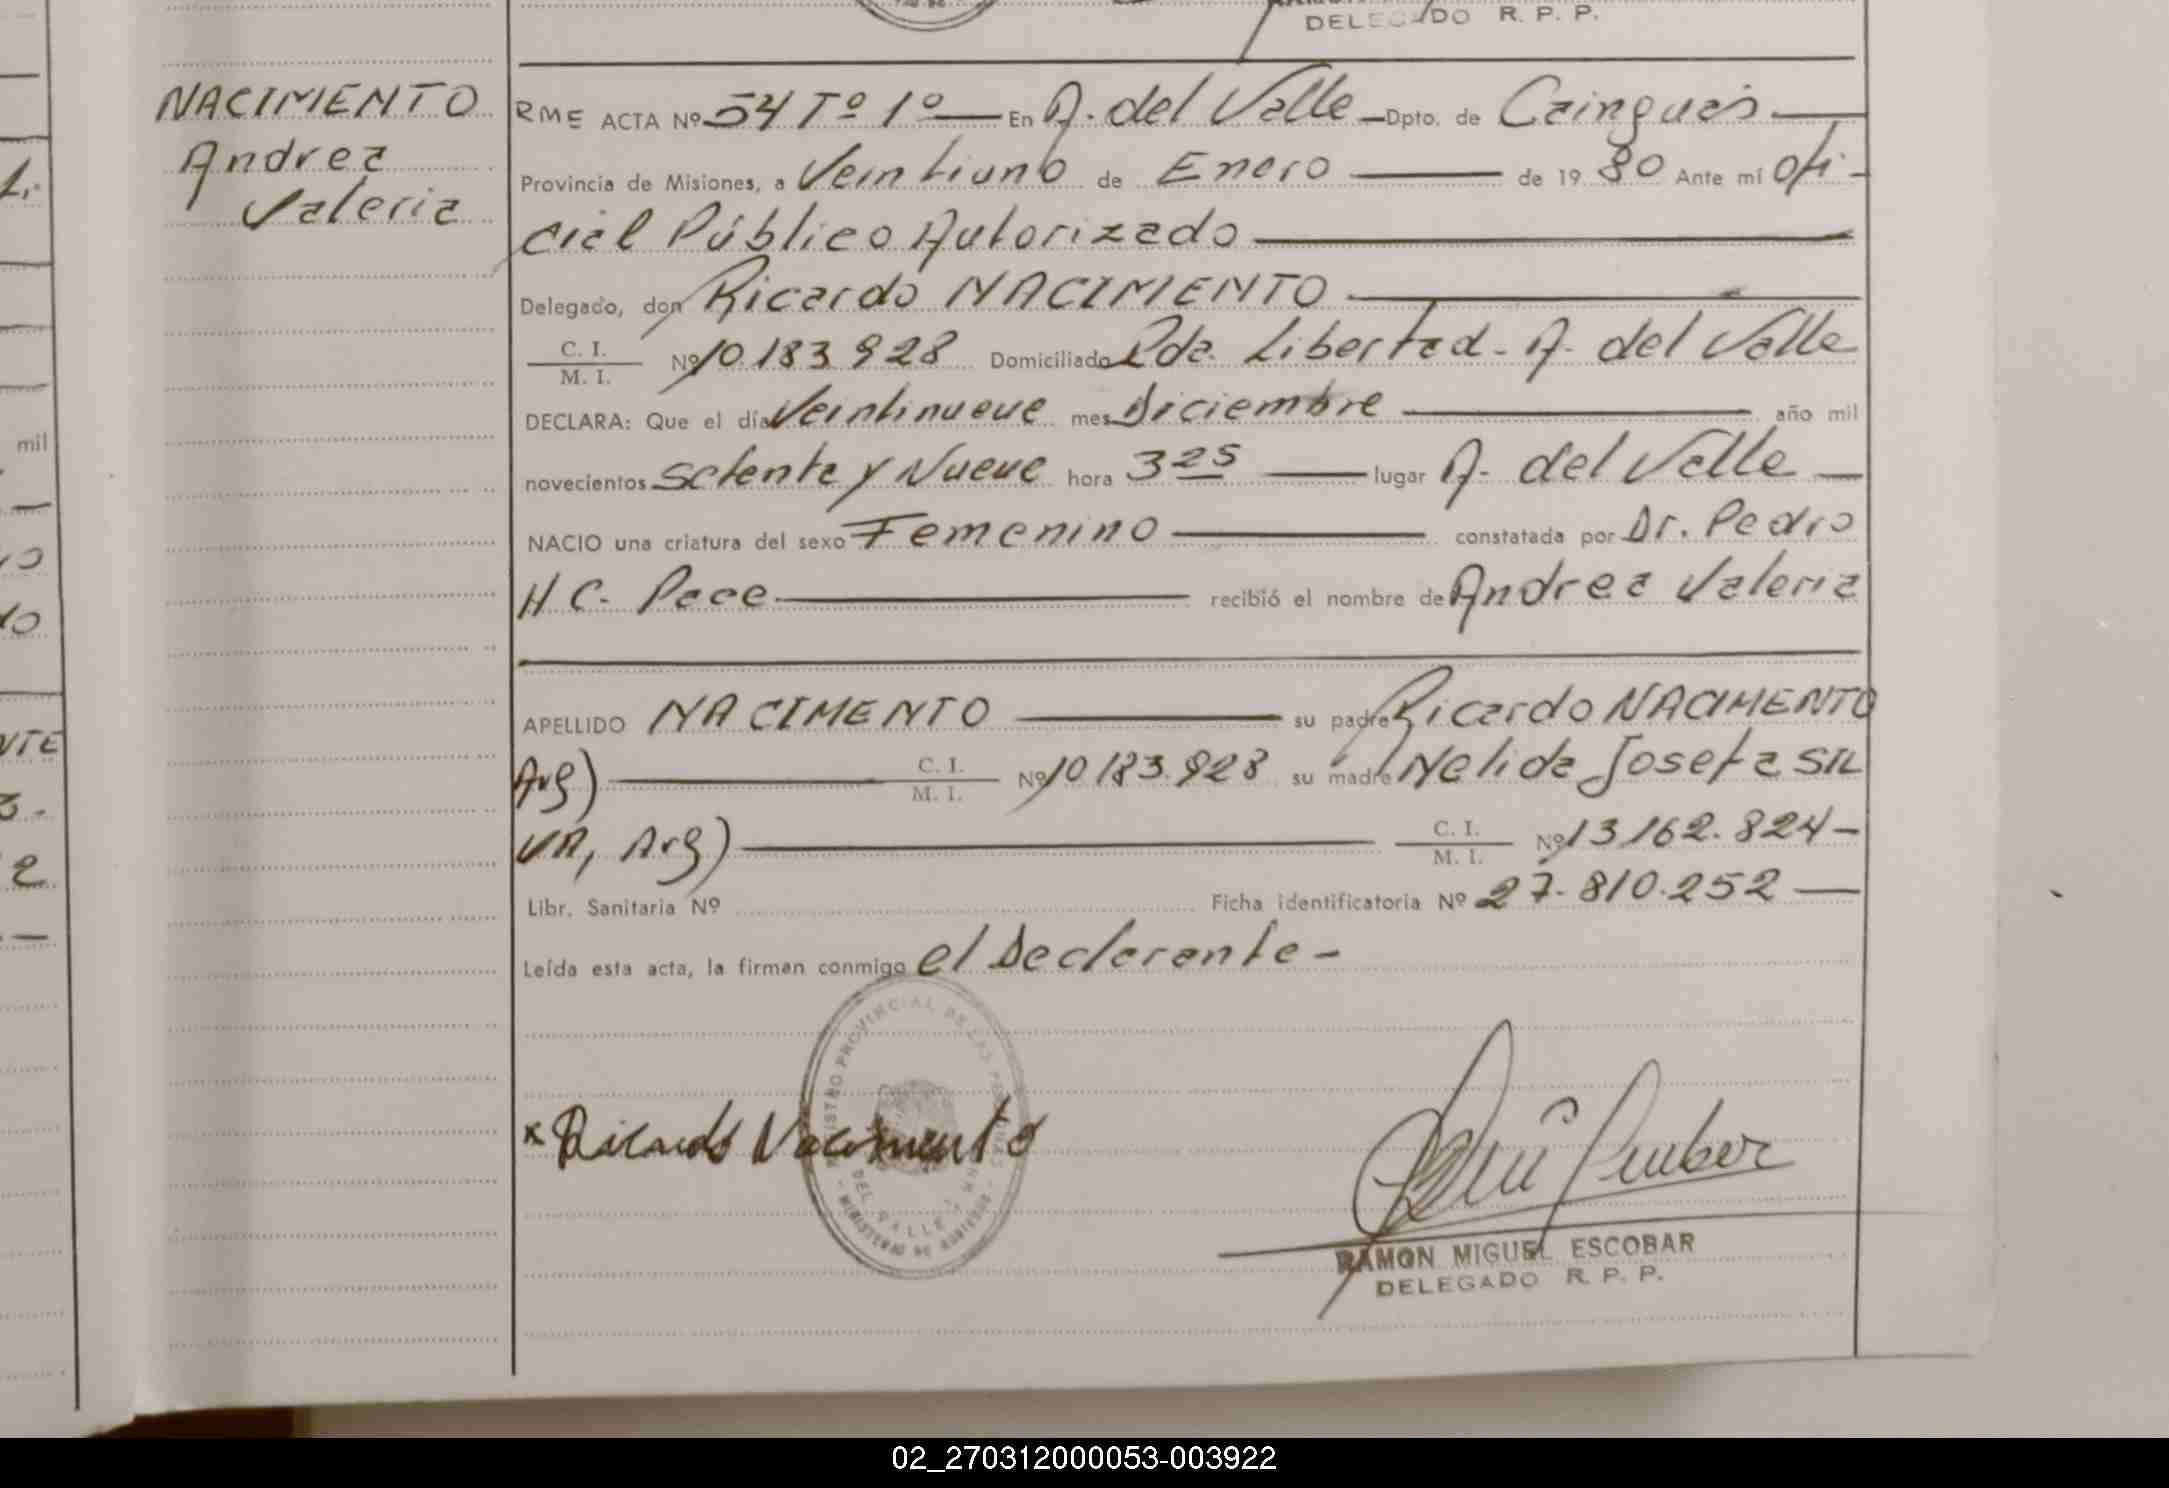 DELEGADO R. P. P.
NACIMIENTO
Andrea
Valeria
RME ACTA Nº 54 Tº 1º En A. del Valle Dpto. de Cainguás
Provincia de Misiones, a Veintiuno de Enero de 1980 Ante mí Ofi-
cial Público Autorizado
Delegado, don Ricardo NACIMIENTO
C. I.
M. I. Nº 10.183.928 Domiciliado Pda. Libertad - A. del Valle
DECLARA: Que el día Veintinueve mes Diciembre año mil
novecientos Setenta y Nueve hora 3 25 lugar A. del Valle
NACIO una criatura del sexo Femenino constatada por Dr. Pedro
H C. Pece recibió el nombre de Andrea Valeria
APELLIDO NACIMENTO su padre Ricardo NACIMENTO
Arg) C. I.
M. I. Nº 10.183.928 su madre Nelida Josefa SIL
VA, Arg) C. I.
M. I. Nº 13162.824-
Libr. Sanitaria Nº Ficha identificatoria Nº 27.810.252
Leída esta acta, la firman conmigo el Declarante -
REGISTRO PROVINCIAL DE LAS PERSONAS
DEL VALLE
MINISTERIO DE GOBIERNO
x Ricardo Nacimento
RAMON MIGUEL ESCOBAR
DELEGADO R. P. P.
mil
02_270312000053-003922